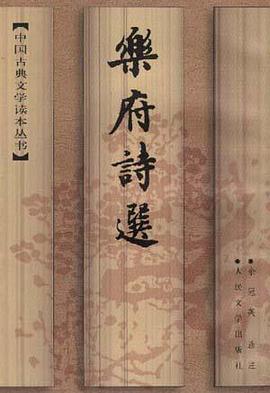 【中国古典文学读本丛书】
樂府詩選
余冠英 选注
人民文学出版社